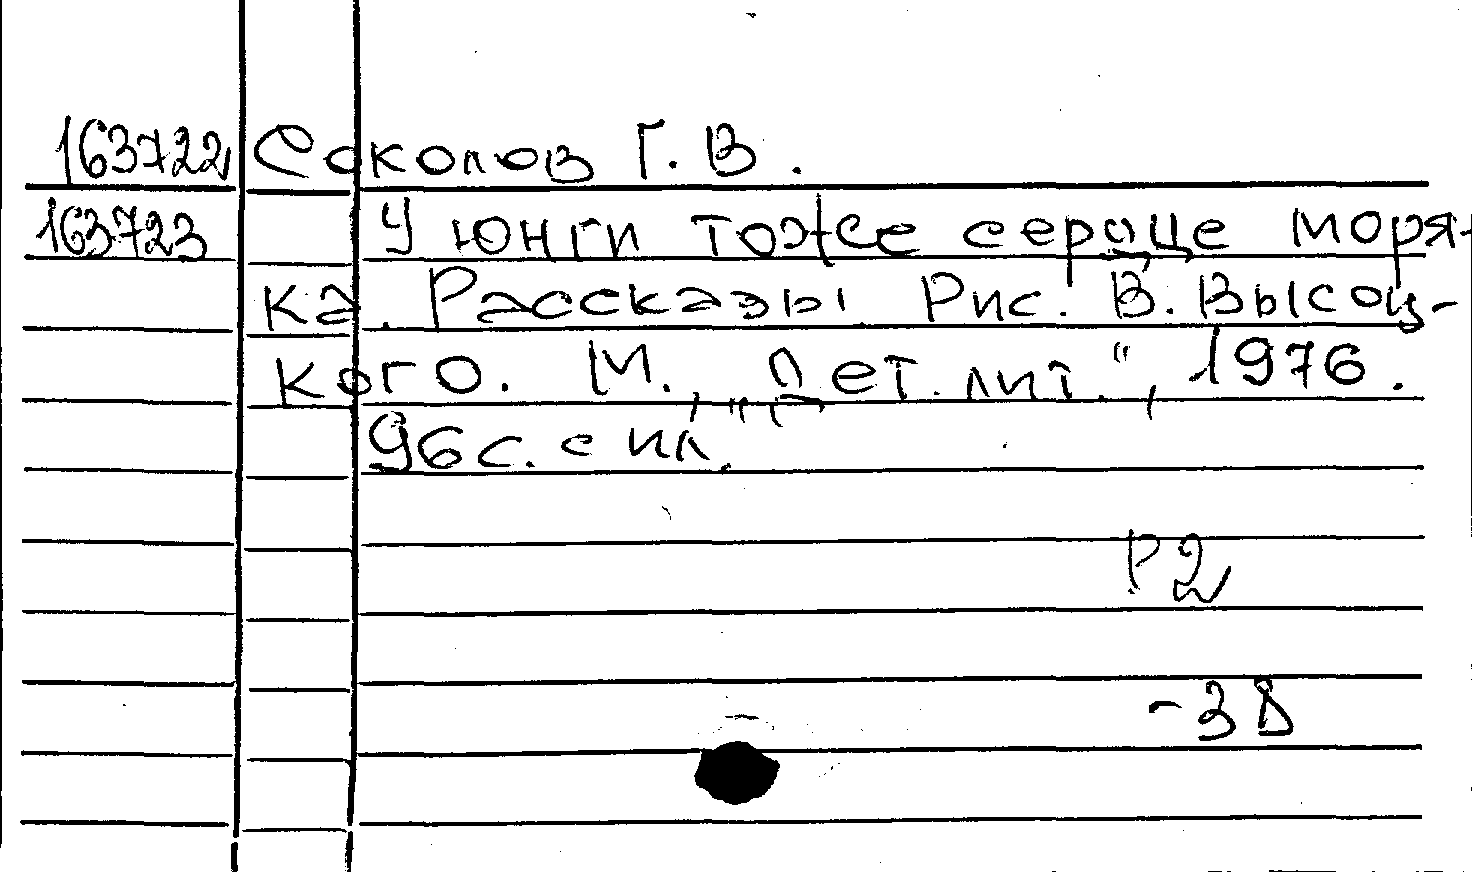 163722 Соколов Г. В.
163723 У юнги тоже сердце моря-
ка. Рассказы. Рис. В. Высоц-
кого. М., „Дет. лит.“, 1976.
96 с. с ил.
Р2
-38